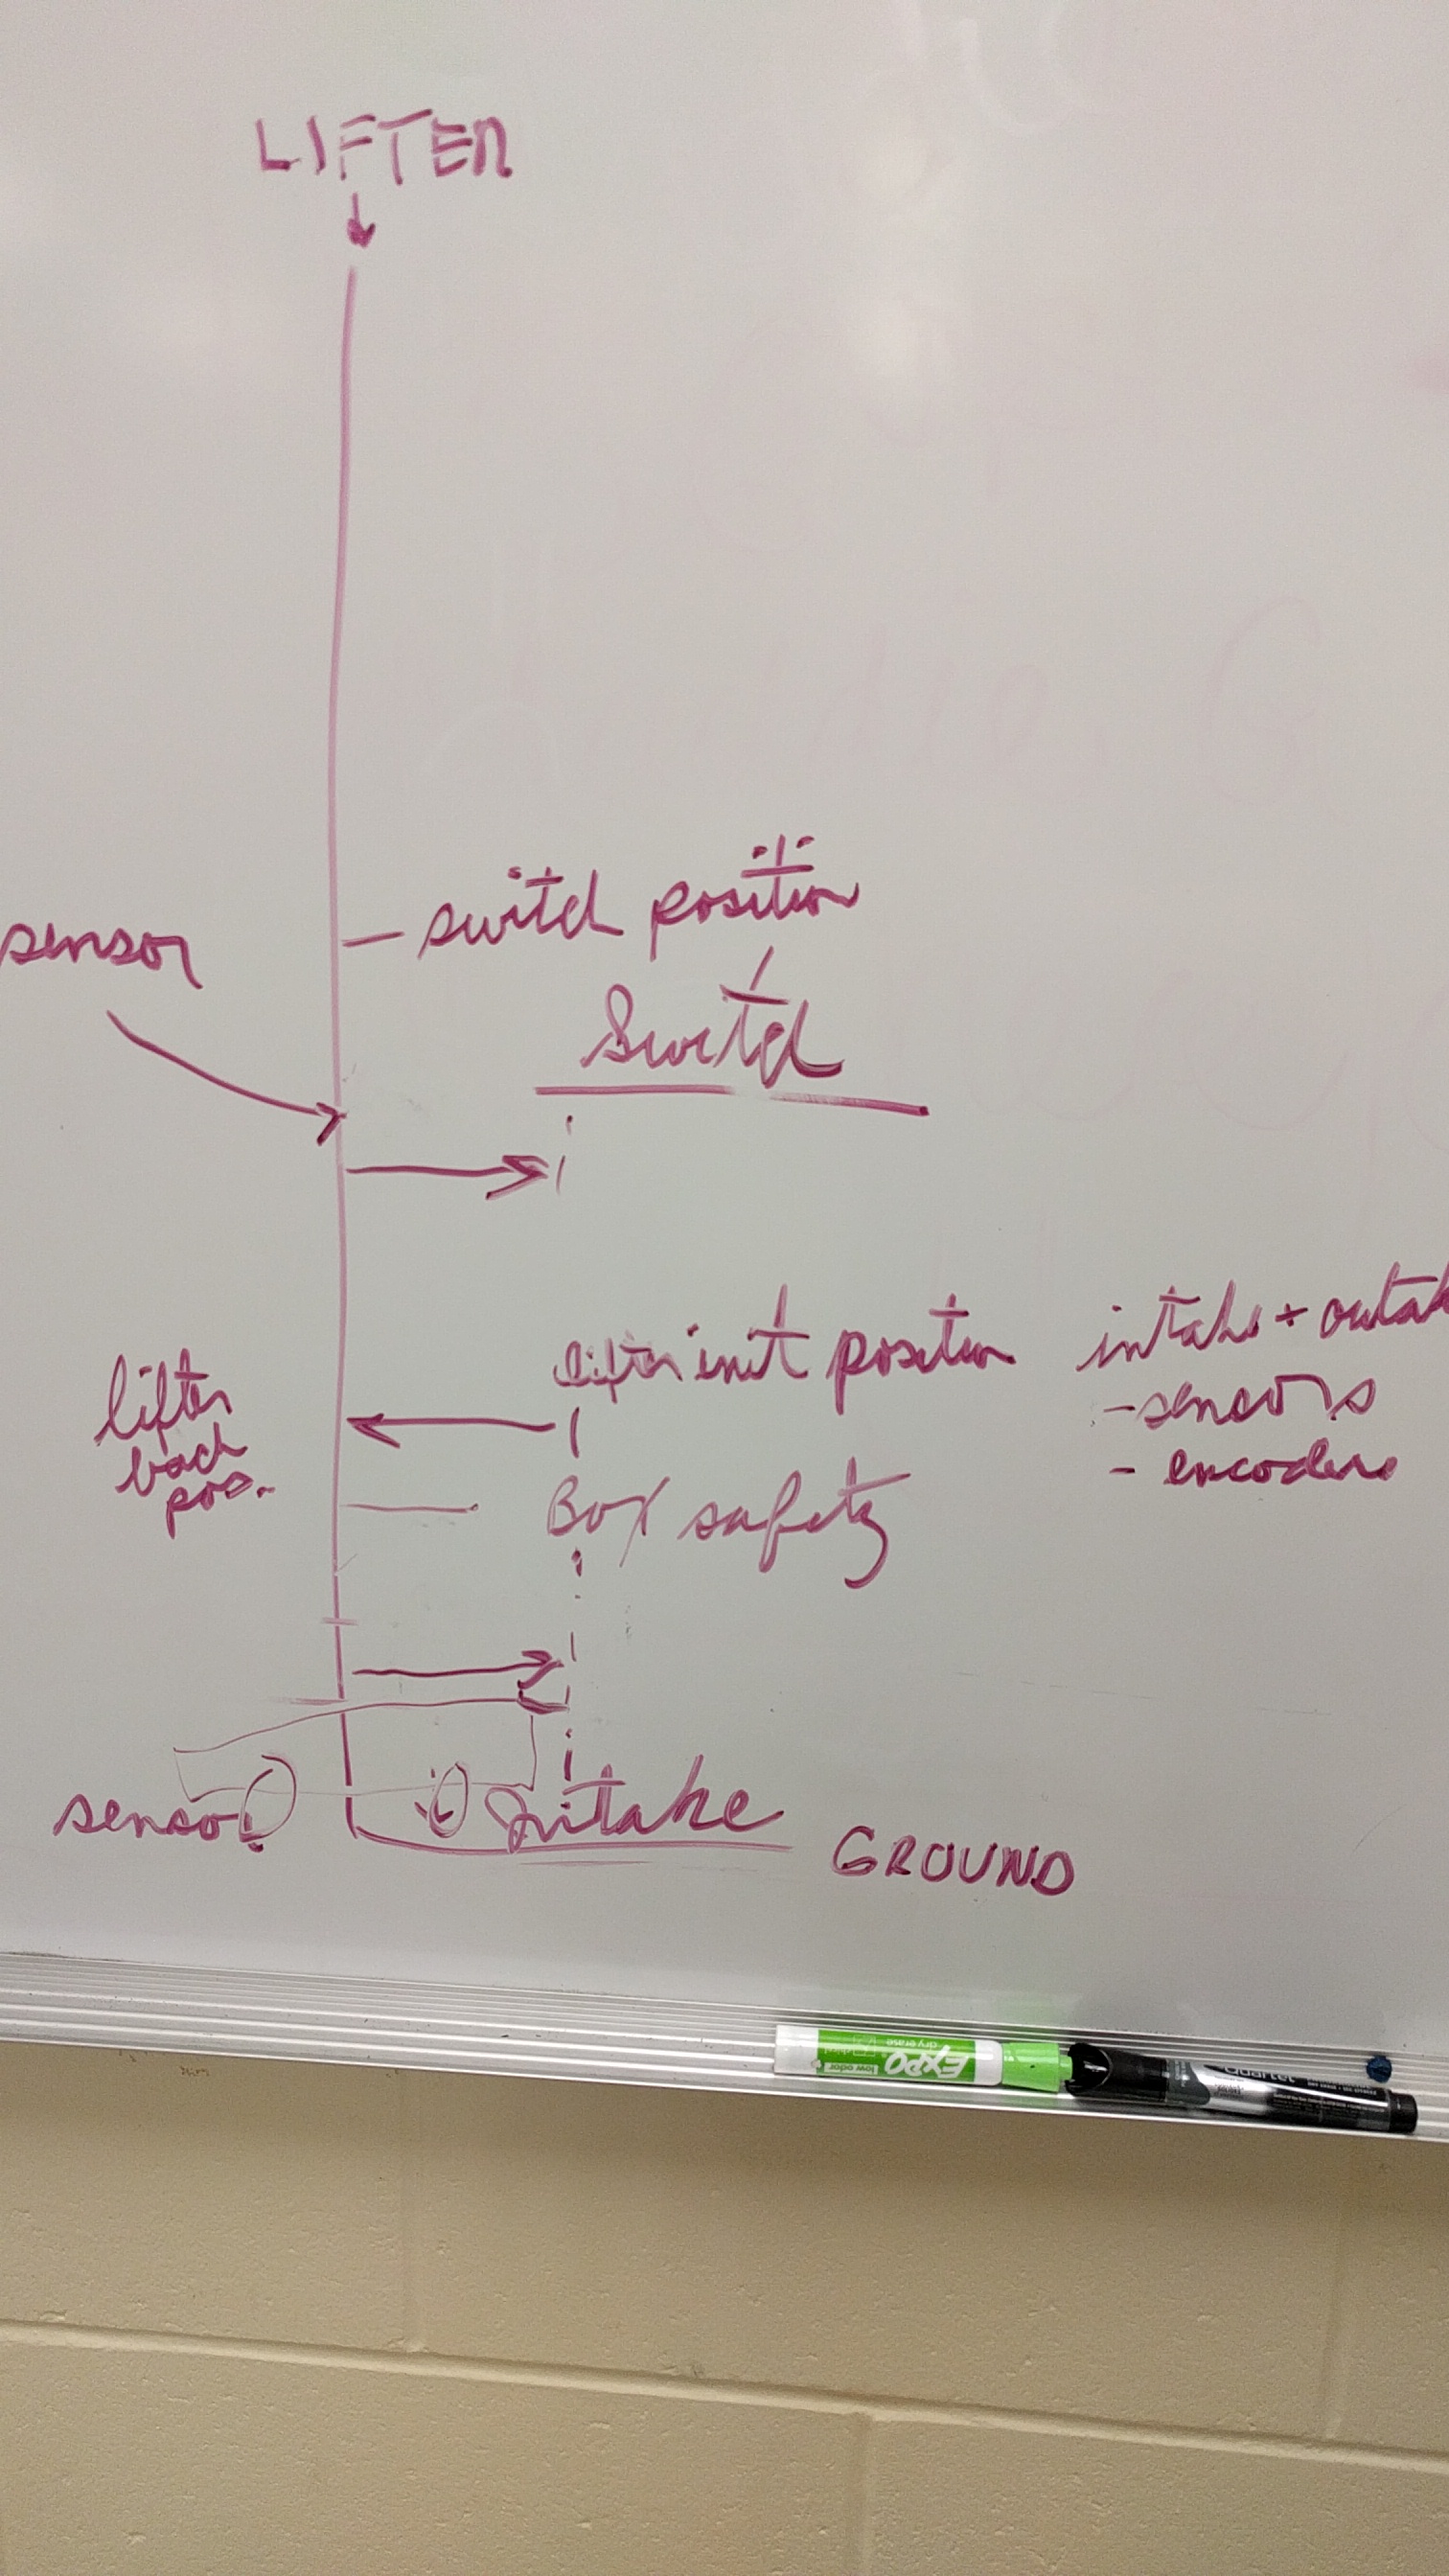 LIFTER
switch position
sensor
Switch
lifter init position
intake + outak
- sensors
- encoders
lifter
back
pos.
Box safety
sensor
Intake
GROUND
EXPO
dry erase
low odor
Quartet